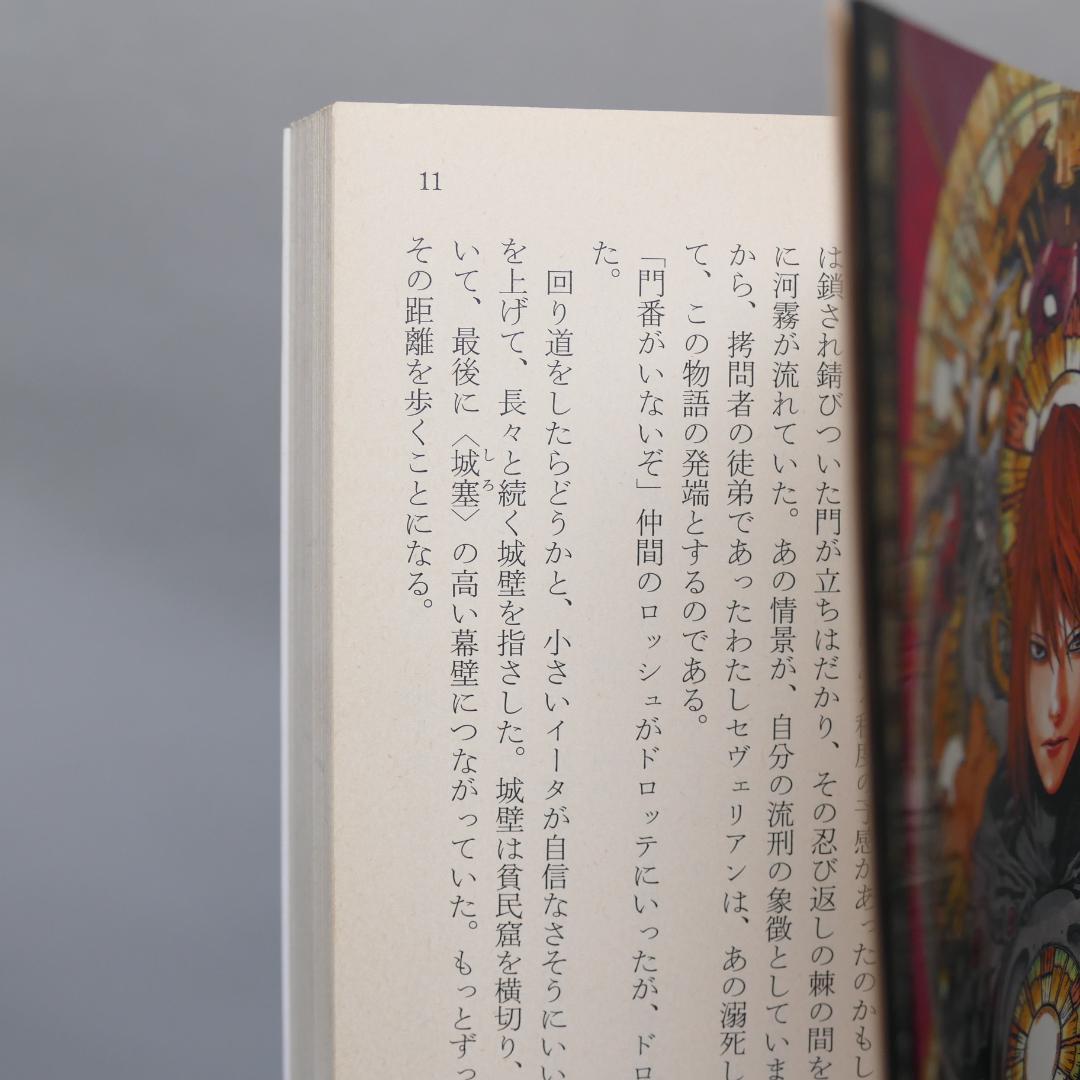 11
程度の予感があったのかもし
は鎖され錆びついた門が立ちはだかり、その忍び返しの棘の間を
に河霧が流れていた。あの情景が、自分の流刑の象徴としていま
から、拷問者の徒弟であったわたしセヴェリアンは、あの溺死し
て、この物語の発端とするのである。
「門番がいないぞ」仲間のロッシュがドロッテにいったが、ドロ
た。
回り道をしたらどうかと、小さいイータが自信なさそうにいい
を上げて、長々と続く城壁を指さした。城壁は貧民窟を横切り、
いて、最後に〈城塞〉の高い幕壁につながっていた。もっとずっ
しろ
その距離を歩くことになる。